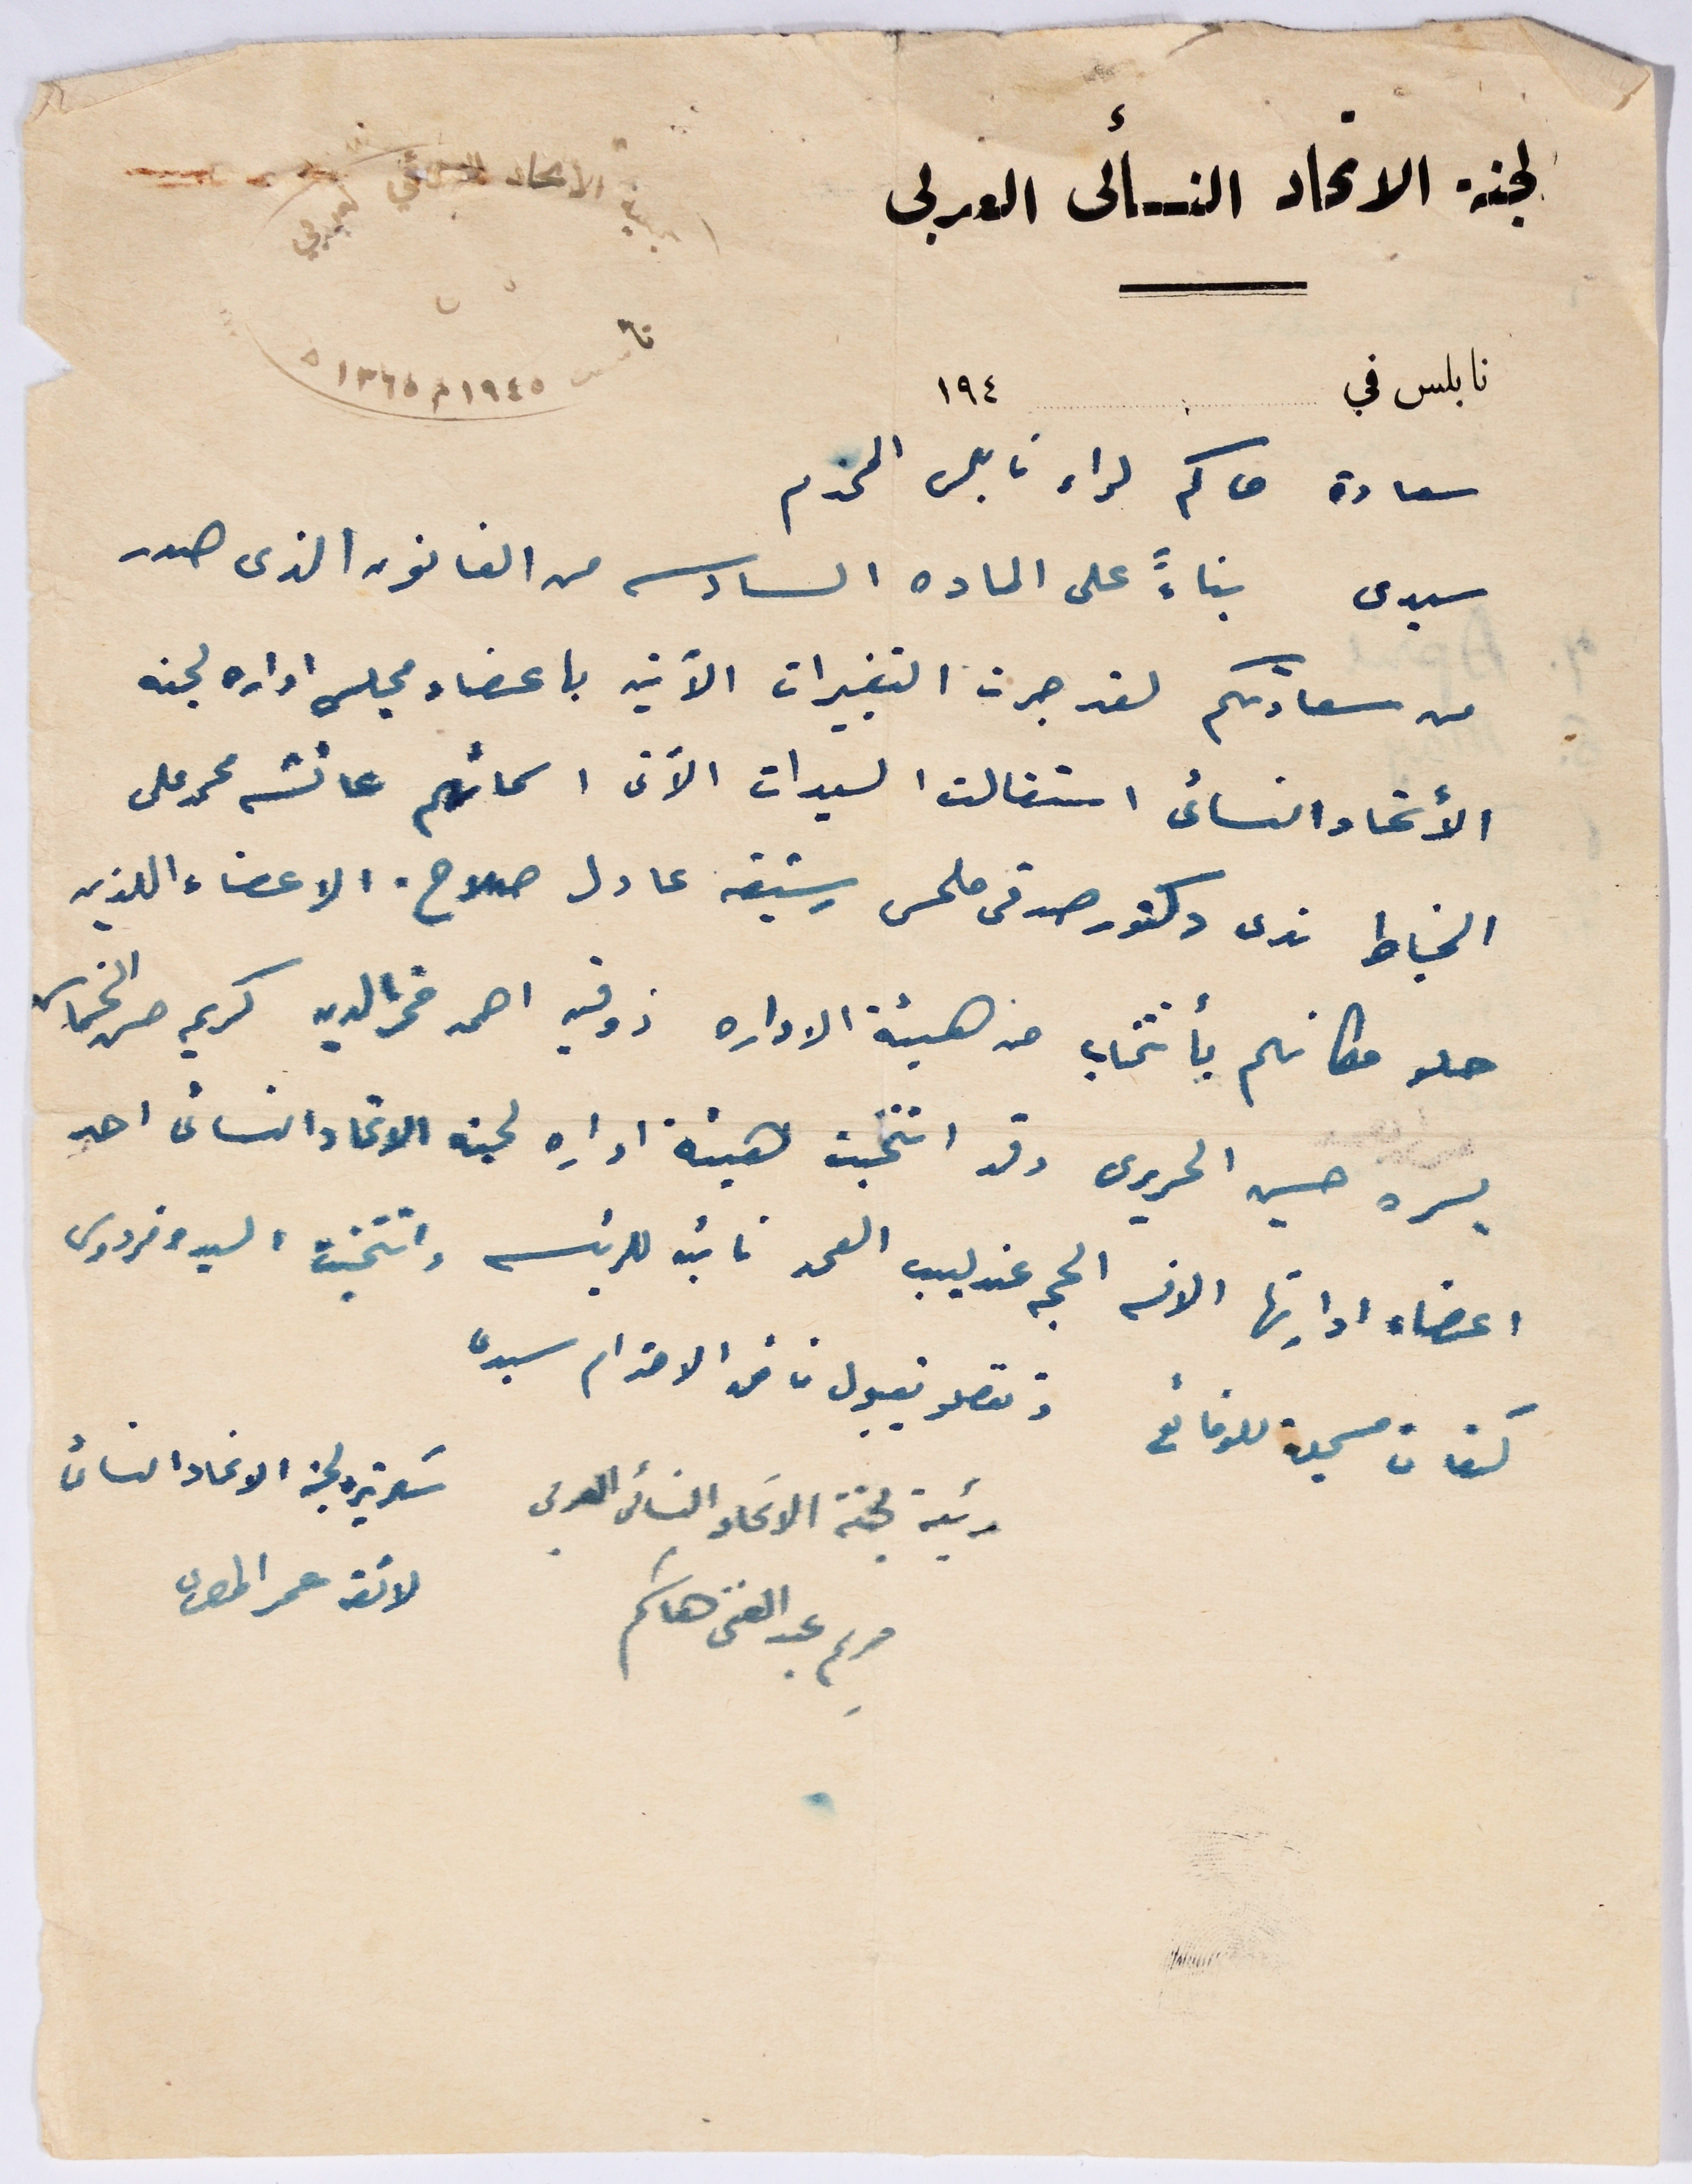 لجنة الاتحاد النسأئى العربى
لجنة الاتحاد النسائي العربي
نابلس
تأسست ١٩٤٥ م ١٣٦٥ ه
نابلس في ١٩٤
سعادة حاكم لواء نابلس المحترم
سيدى بناءً على الماده السادسه من القانون الذى صدر
من سعادتكم لقد جرت التغييرات الآتيه باعضاء مجلس اداره لجنه
الأتحاد النسائى استقالت السيدات الآتى اسمائهم عائشه محمد على
الخياط ندى دكتور صدقى ملحس رشيقه عادل صلاح. الاعضاء اللذين
حلو مكانهم بأنتخاب من هيئة الاداره ذوقيه احمد فخرالدين كريمه حسن الخماش
يسره حسين الحريرى وقد انتخبت هيئة اداره لجنه الاتحاد النسائى احد
اعضاء ادارتها الانسه الحجه عندليب العمد نائبه للرئيسه وانتخبت السيده فردوس
كنعان مسجلة للوقائع وتفضلو بقبول فائق الاحترام سيدى
رئيسة لجنة الاتحاد النسائى العربى
مريم عبد الغنى هاشم
سكرتيره لجنة الاتحاد النسائى
لائقه عمر المصرى